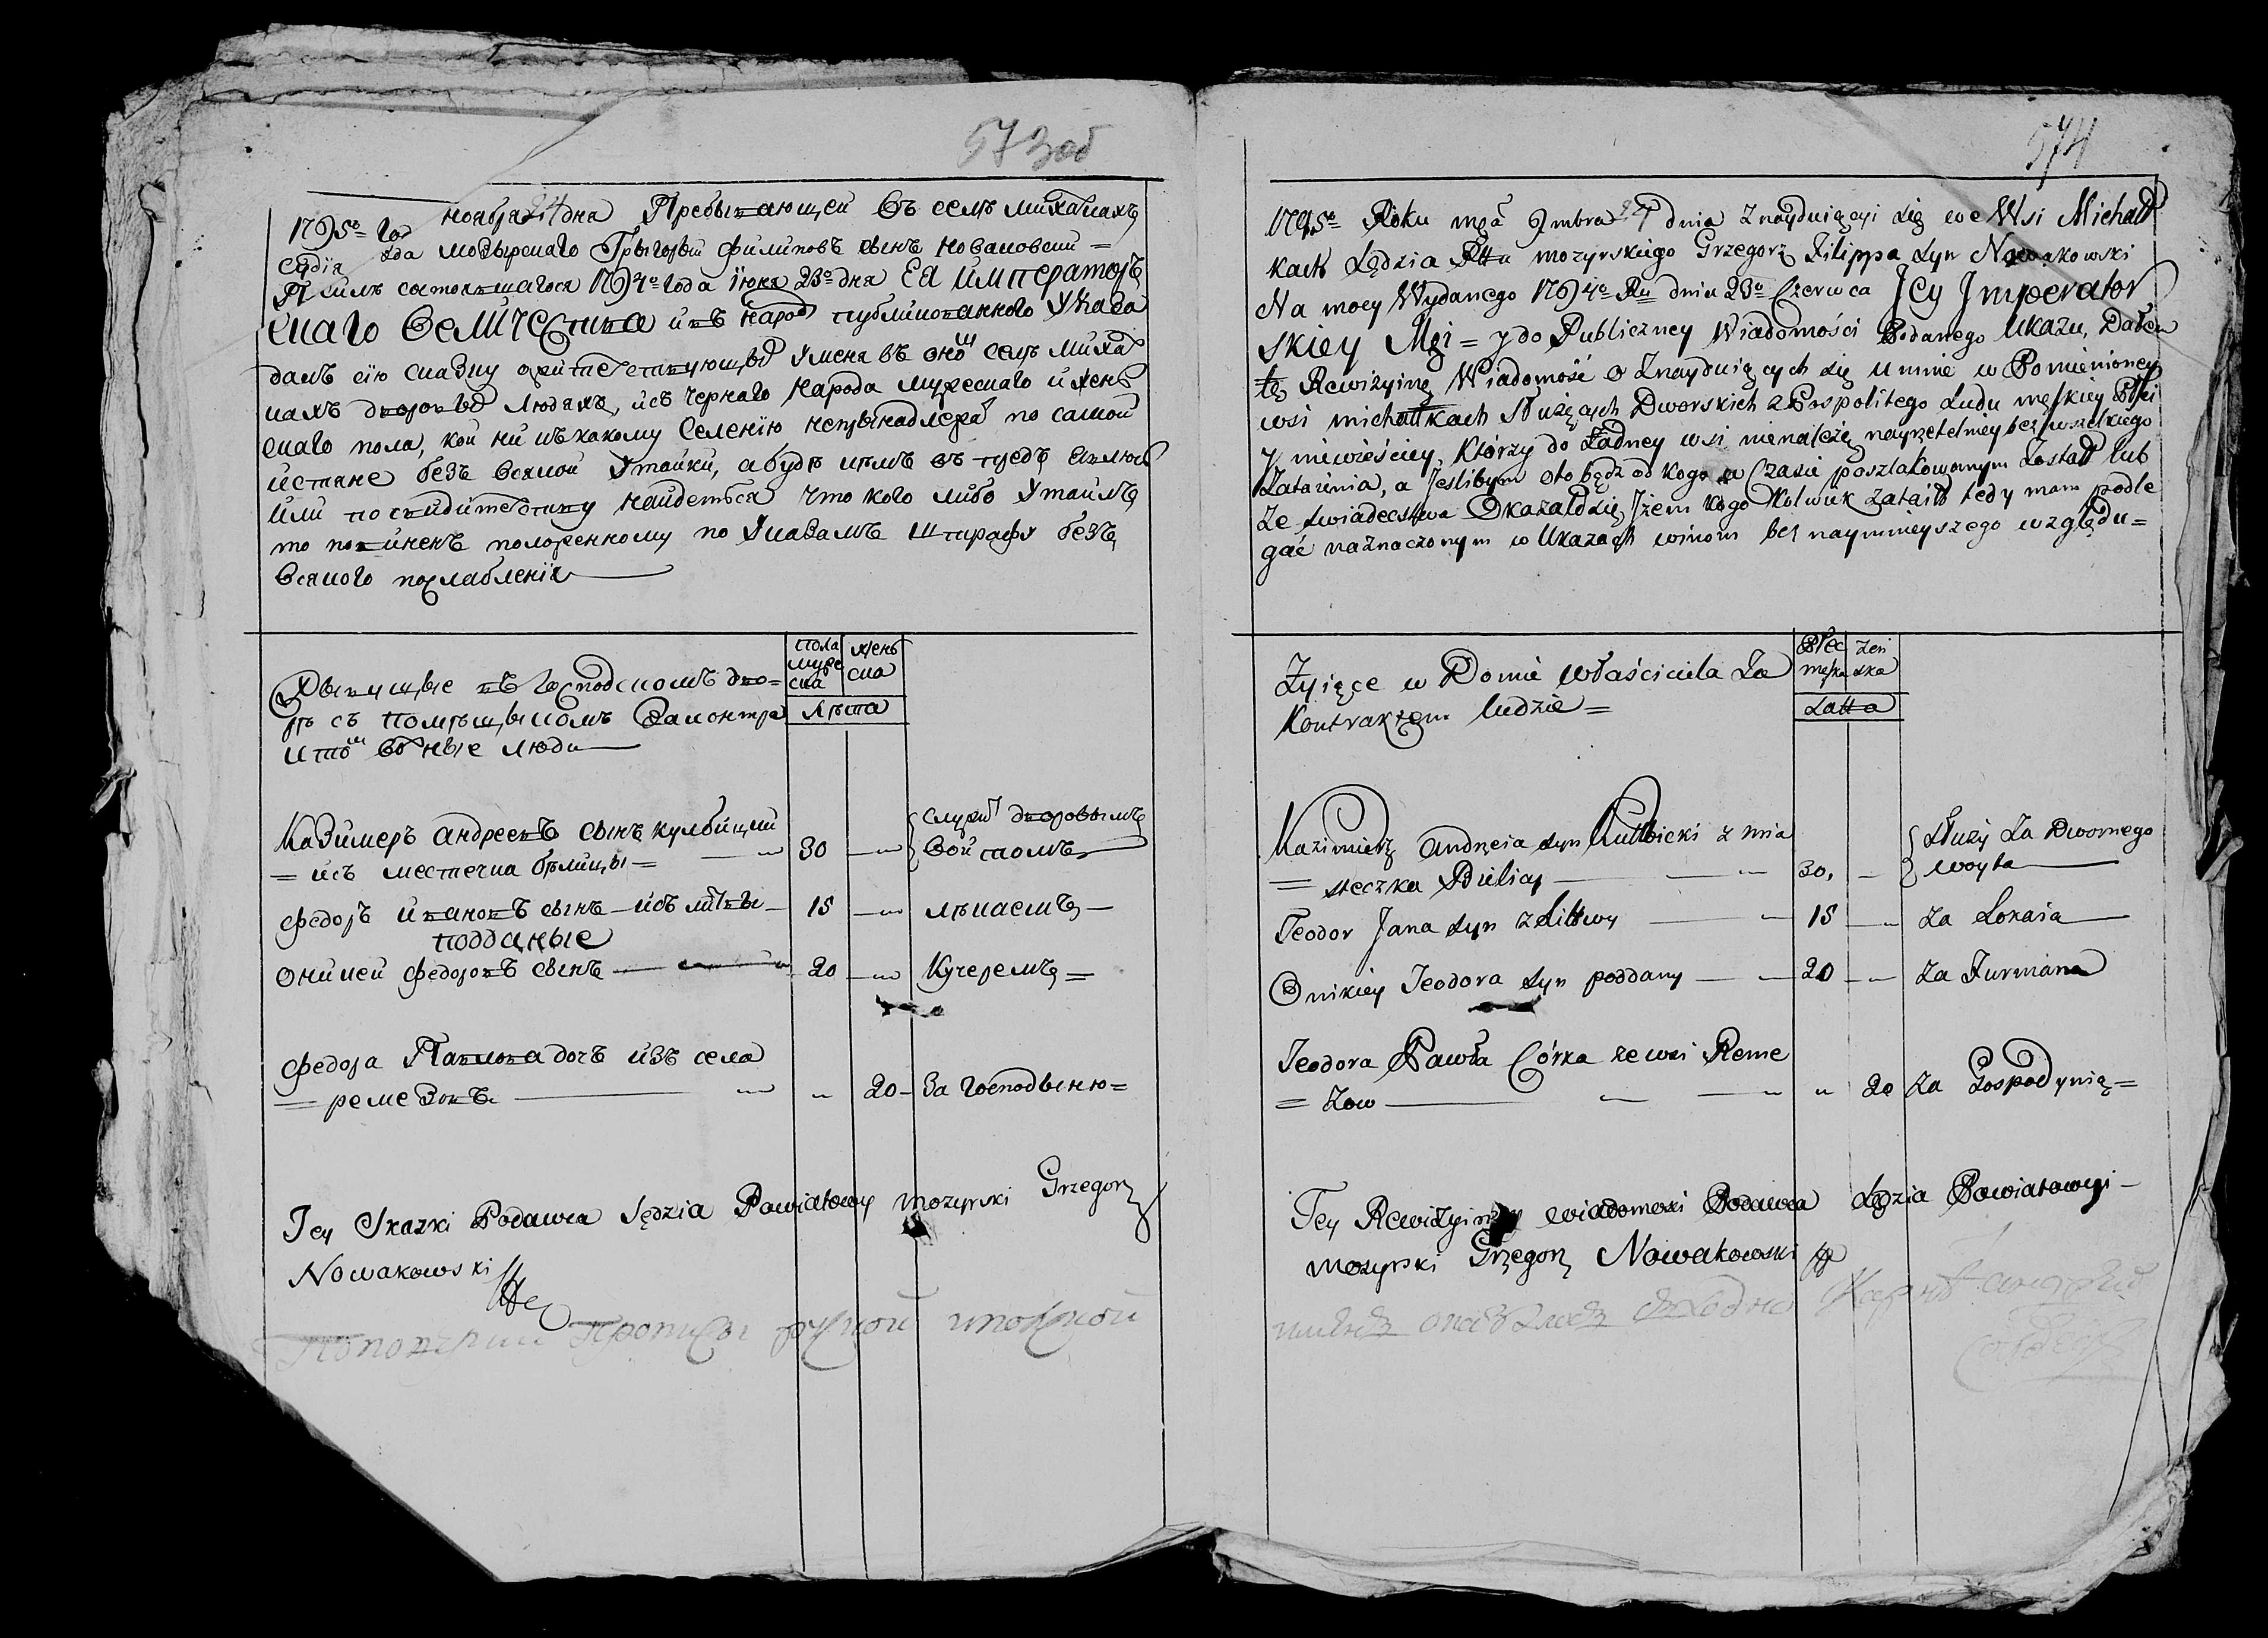 573об
1795го года ноября 24 дня Пребывающей въ селѣ михалкахъ
судїя мозырскаго Грыгорѣй филиповъ сынъ новаковски=
силѣ состоявшагося 1794го года їюня 23го дня Ея императоръ
скаго Величества и въ народ публикованного Указа
далъ сїю сказку о живущыхъ у меня въ оной селѣ михал
кахъ дворовыхъ людяхъ, исъ чернаго народа мужескаго и жень
скаго пола, кои ни къ какому селенїю непрынадлежат по самой
истине безъ всякой утайки, а буде кемъ въ предъ
или по свидителству найдеться что кого либо утаилъ
то повиненъ положенному по указамъ штрафу безъ
всякого послабленїя
Жывущые въ господскомъ дво=
рѣ съ помѣщыкомъ законтра
ктованые люди
пола
муже
ска
жень
ска
лѣта
Казимеръ андреевъ сынъ кулбицкий
= исъ местечка бѣлицы =
30
служит дворовымъ
войтомъ
федоръ ивановъ сынъ исъ литвы
15
лѣкаемъ
подданые
оникей федоровъ сынъ
20
Кучеремъ =
федора Павлова дочъ изъ села
= ремезовъ
20
За господыню=
Jey Skazki Podawca Sędzia Powiatowy mozyrski Grzegorz
Nowakowski
574
1795o Roku mca 9mbra 24 dnia Znayduiącyi się we Wsi Michałł
kach Sędzia Pttu mozyrskiego Grzegorz Filippa Syn Nowakowski
Na mocy Wydanego 1794o Ru dnia 23o Czerwca Jey Jmperator
skiey Mci = y do Publiczney Wiadomości Podanego Ukazu, Dałem
tę Rewizyiną Wiadomość o Znayduiących się u mnie w Pomienioney
wsi michałkach Służących Dworskich z Pospolitego Ludu męskiey Płci
y niewieściey, Którzy do Żadney wsi nienależą nayrzetelniey bez wszelkiego
Zataienia, a Jeślibym oto bądz od kogo w Czasie poszlakowanym Został lub
Ze swiadectwa Okazałosię Jżem kogo Kolwiek zataił tedy mam podle
gać naznaczonym w Ukazach winom bez naymnieyszego względu=
Żyiące w Domie właściciela Za
Kontraktem ludzie=
Płeć
męska
żeń
ska
Latta
Kazimierz Andrzeia syn Kulbicki z mia
= steczka Bielicy
30,
Służy Za Dwornego
woyta
Teodor Jana syn z Littwy
15
Za Lokaia
Onikiey Teodora syn poddany
20
Za Furmana
Teodora Pawła Córka ze wsi Reme
= Zow
20
Za Gospodynią=
Tey Rewizyiney wiadomosci Podawca Sędzia Powiatowyi
mozyrski Grzegorz Nowakowski